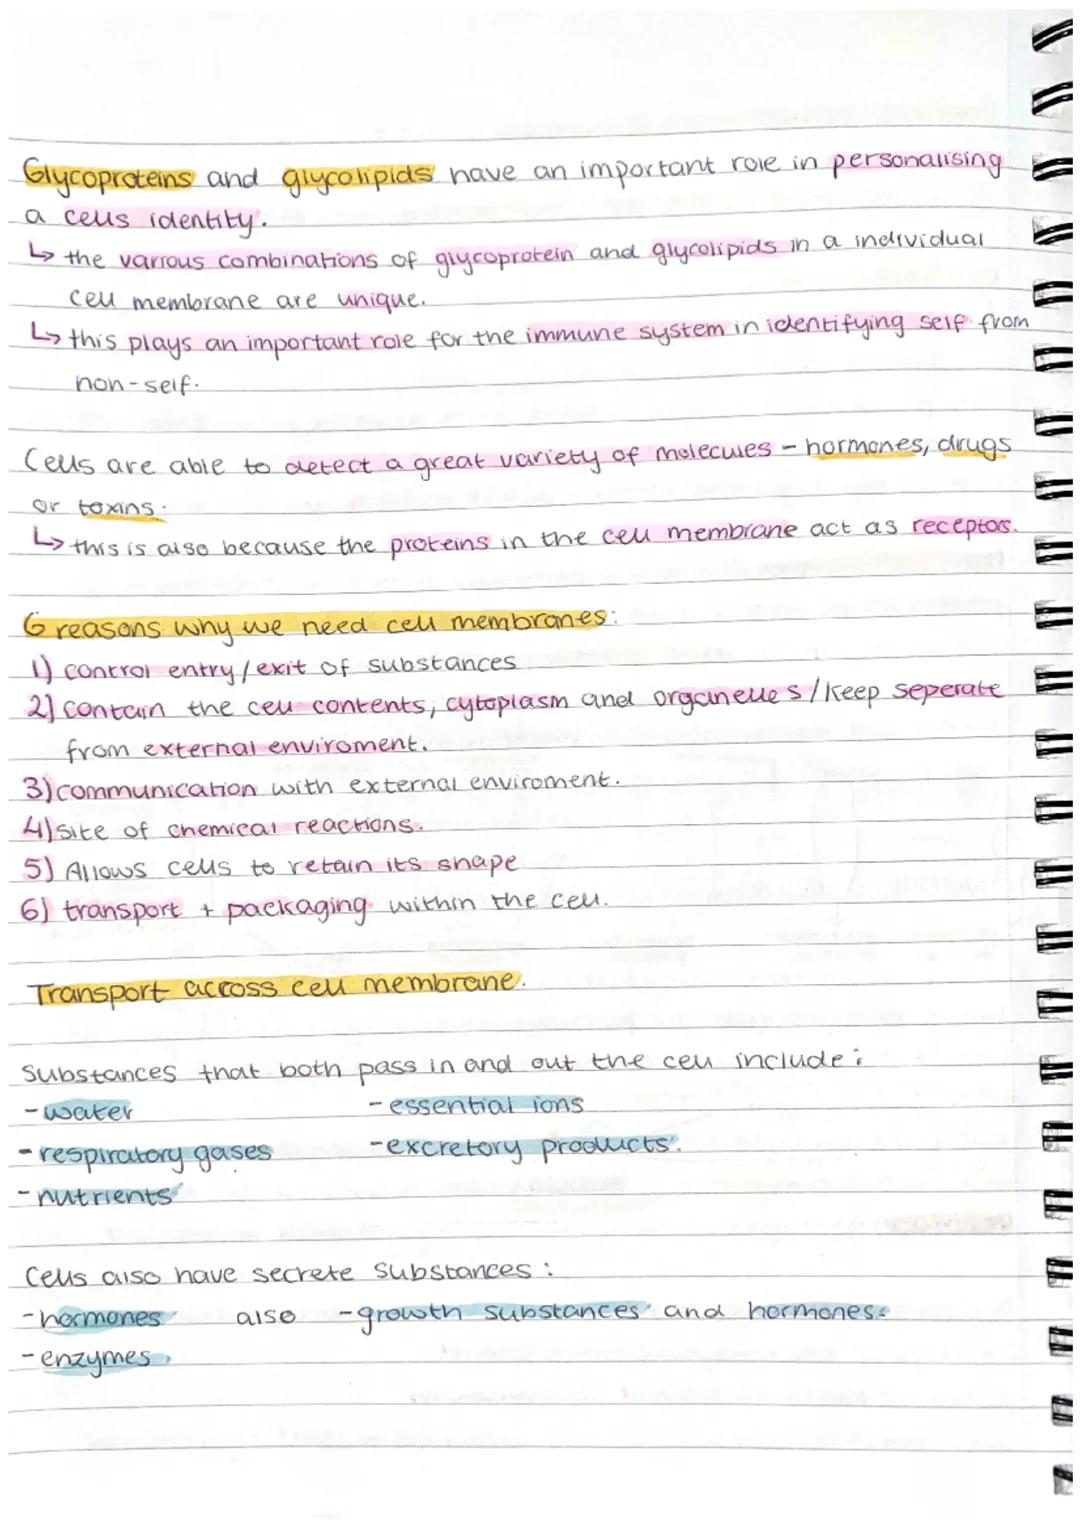 Glycoproteins and glycolipids have an important role in personalising
a cells identity.
↳ the various combinations of glycoprotein and glycolipids in a individual
cell membrane are unique.
↳ this plays an important role for the immune system in identifying self from
non-self.
Cells are able to detect a great variety of molecules - hormones, drugs
or toxins.
↳ this is also because the proteins in the cell membrane act as receptors.
6 reasons why we need cell membranes:
1) control entry/exit of substances
2) contain the cell contents, cytoplasm and organelles/keep seperate
from external enviroment.
3) communication with external enviroment.
4) site of chemical reactions.
5) Allows cells to retain its shape
6) transport + packaging within the cell.
Transport across cell membrane.
Substances that both pass in and out the cell include:
-water -essential ions
-respiratory gases -excretory products.
-nutrients
Cells also have secrete substances:
-hormones also -growth substances and hormones.
-enzymes